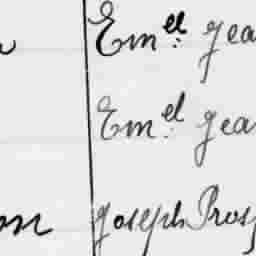 Em.el Jea
Em.el Jea
on Joseph Prosp